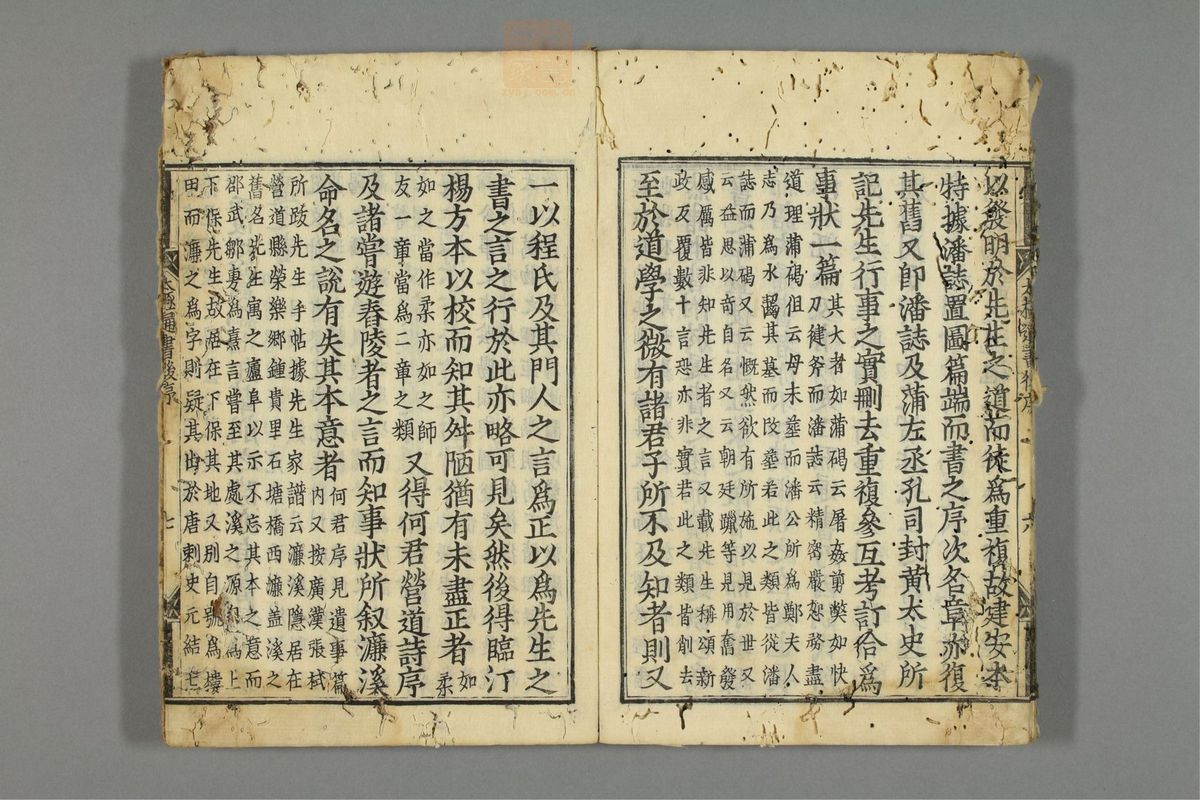 以發明於先生之道而徒爲重複故建安本
特據潘誌置圖篇端而書之序次名章亦復
其舊又卽潘誌及蒲左丞孔司封黄太史所
記先生行事之實刪去重複參互考訂合爲
事狀一篇
其大者如蒲碣云屠姦剪弊如快
刀健斧而潘誌云精密嚴恕務盡
道理蒲碣但云母未葬而潘公所爲鄭夫人
志乃爲水齧其墓而改葬若此之類皆從潘
誌而蒲碣又云慨然欲有所施以見於世又
云益思以奇自名又云朝廷躐等見用奮發
感厲皆非知先生者之言又載先生稱頌新
政反覆數十言恐亦非實若此之類皆削去
至於道學之微有諸君子所不及知者則又
一以程氏及其門人之言爲正以爲先生之
書之言之行於此亦略可見矣然後得臨汀
楊方本以校而知其舛陋猶有未盡正者
如柔
如之當作柔亦如之師
友一章當爲二章之類
又得何君營道詩序
及諸嘗遊舂陵者之言而知事狀所叙濂溪
命名之說有失其本意者
何君序見遺事篇
內又按廣漢張栻
所跋先生手帖據先生家譜云濂溪隱居在
營道縣榮樂鄉鍾貴里石塘橋西濂蓋溪之
舊名先生寓之廬阜以示不忘其本之意而
邵武鄒旉爲熹言嘗至其處溪之源自爲上
下保先生故居在下保其地又別自號爲樓
田而濂之爲字則疑其出於唐刺史元結
太極通書後序
七
六